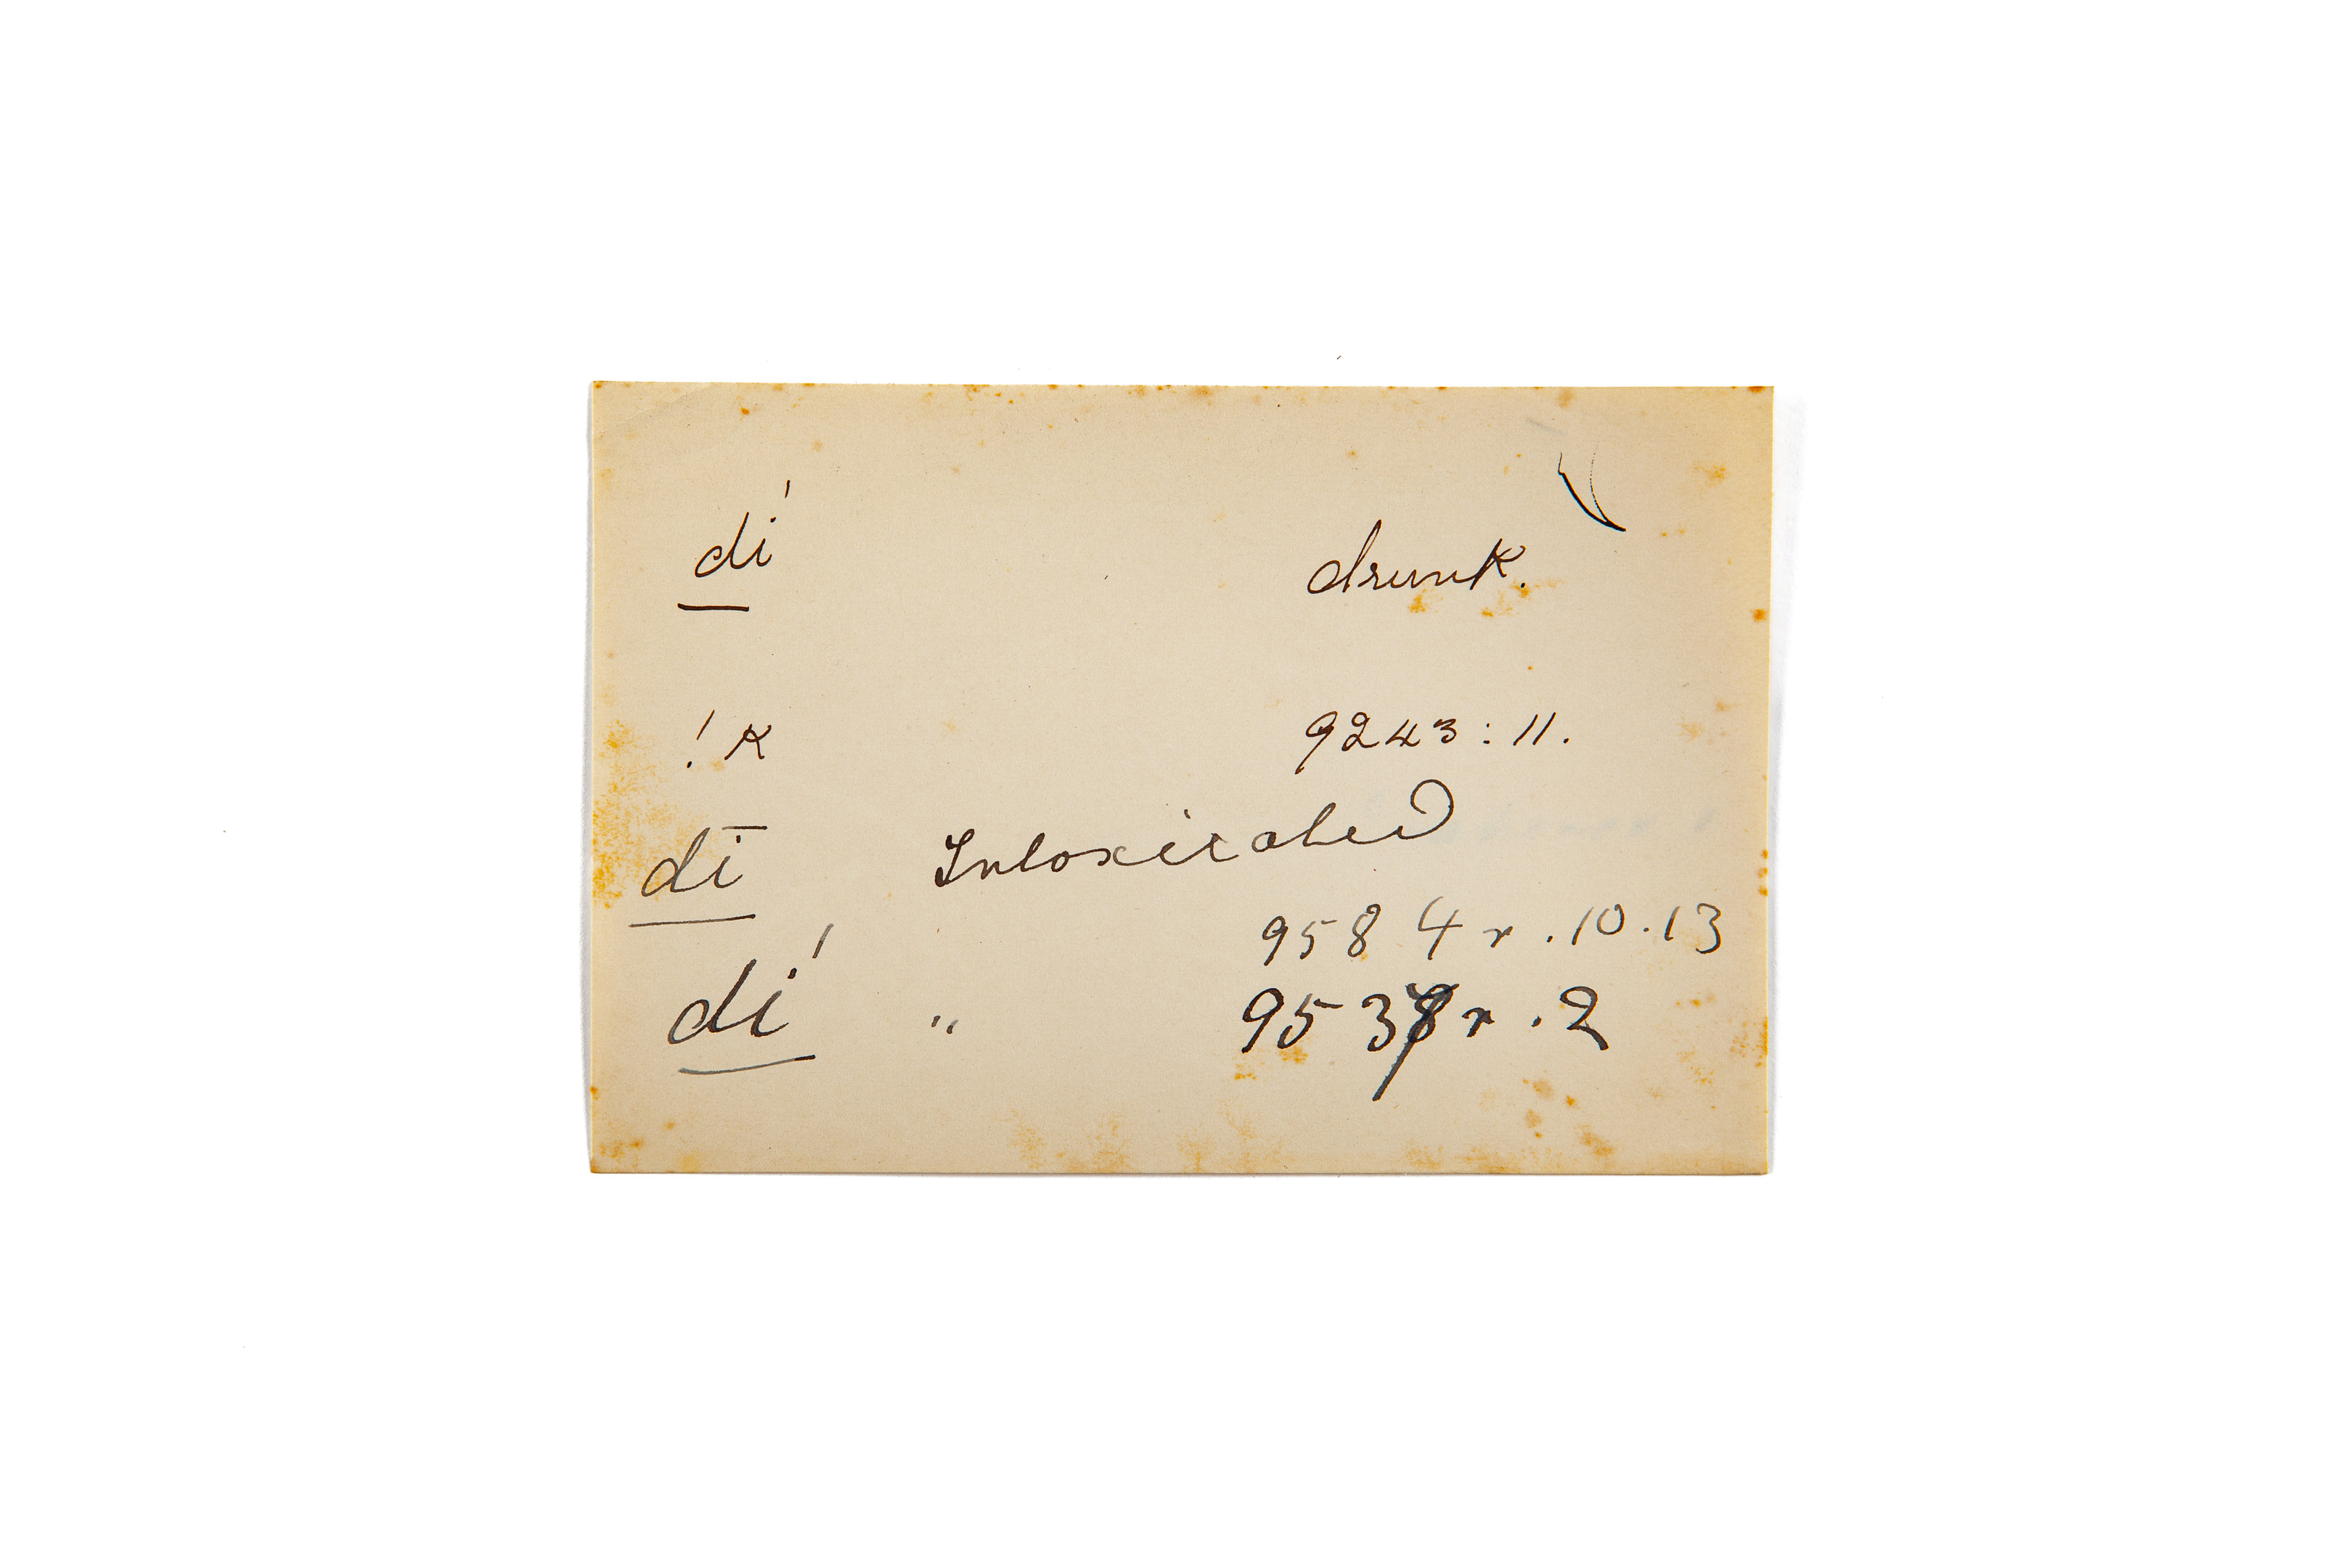 di' drunk.
!K 9243:11.
dī Intoxicated
9584r.10.13
di' " 9537r.2